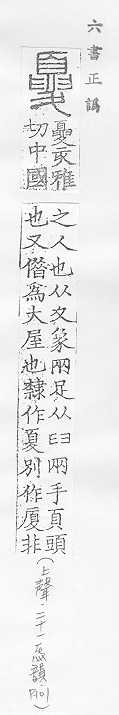 六書正譌
夓亥雅
切中國
之人也从夊象兩足从𦥑兩手頁頭
也又借爲大屋也隸作夏別作廈非
(上聲·二十一馬韻